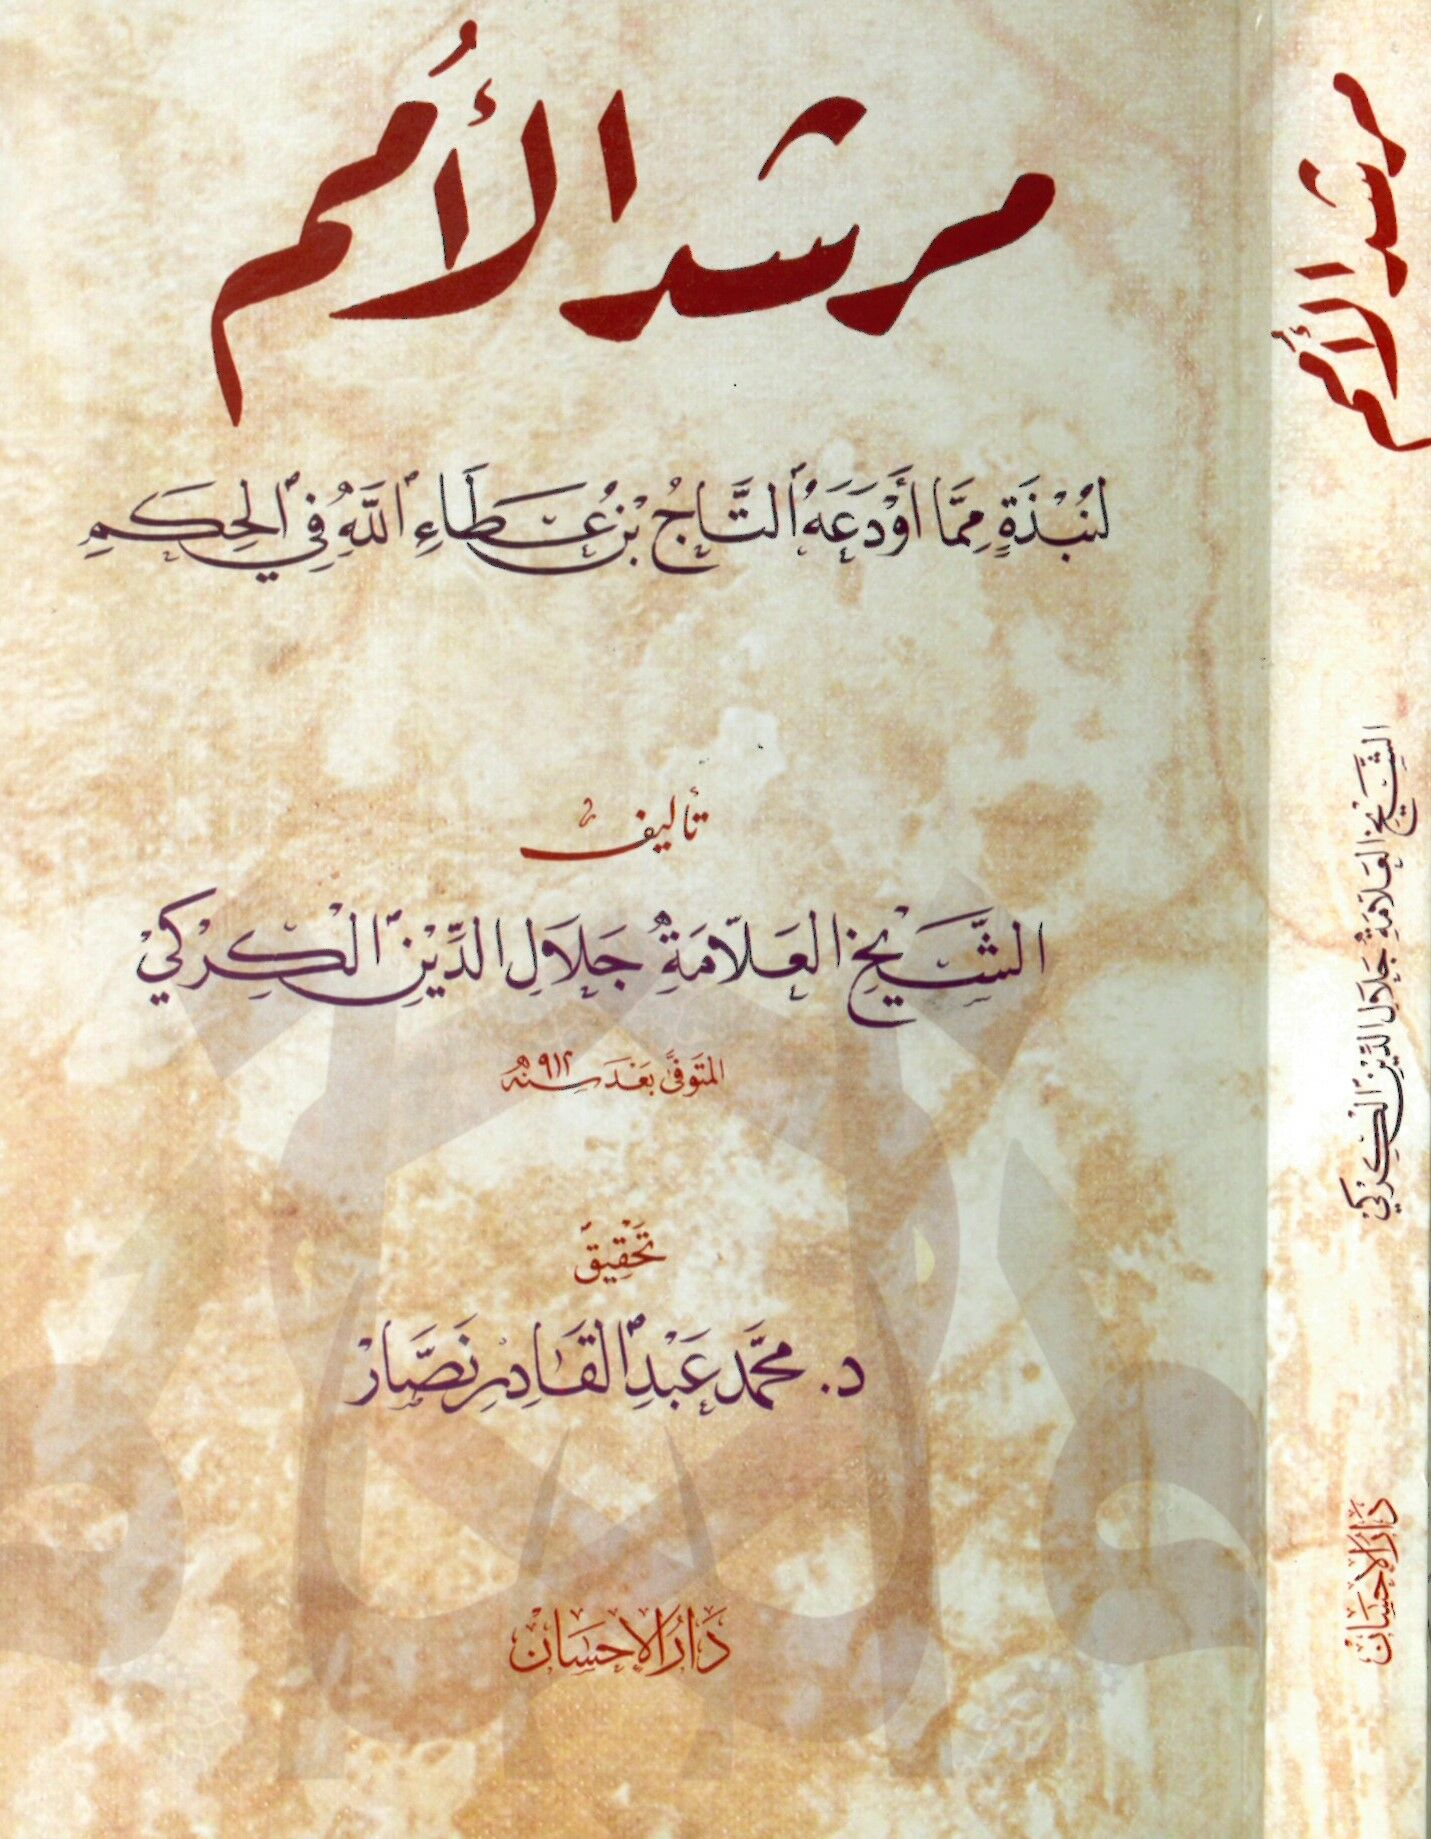 مرشد الأُمم
لنُبْذَةٍ مِمَّا أَوْدَعَهُ التَّاجُ بْنُ عَطَاءِ اللَّهِ فِي الْحِكَمِ
تأليف
الشَّيْخِ العَلَّامَةِ جَلَالِ الدِّيْنِ الْكَرْكِيْ
المتَوفَّى بَعْدَ سنة ٩١٢هـ
تَحْقِيْق
د. محمَّد عَبْدِ القَادِر نَصَّارْ
دَارُ الإِحْسَانْ
مرشد الأُمم
الشَّيْخِ العَلَّامَةِ جَلَالِ الدِّيْنِ الْكَرْكِيْ
دَارُ الإِحْسَانْ